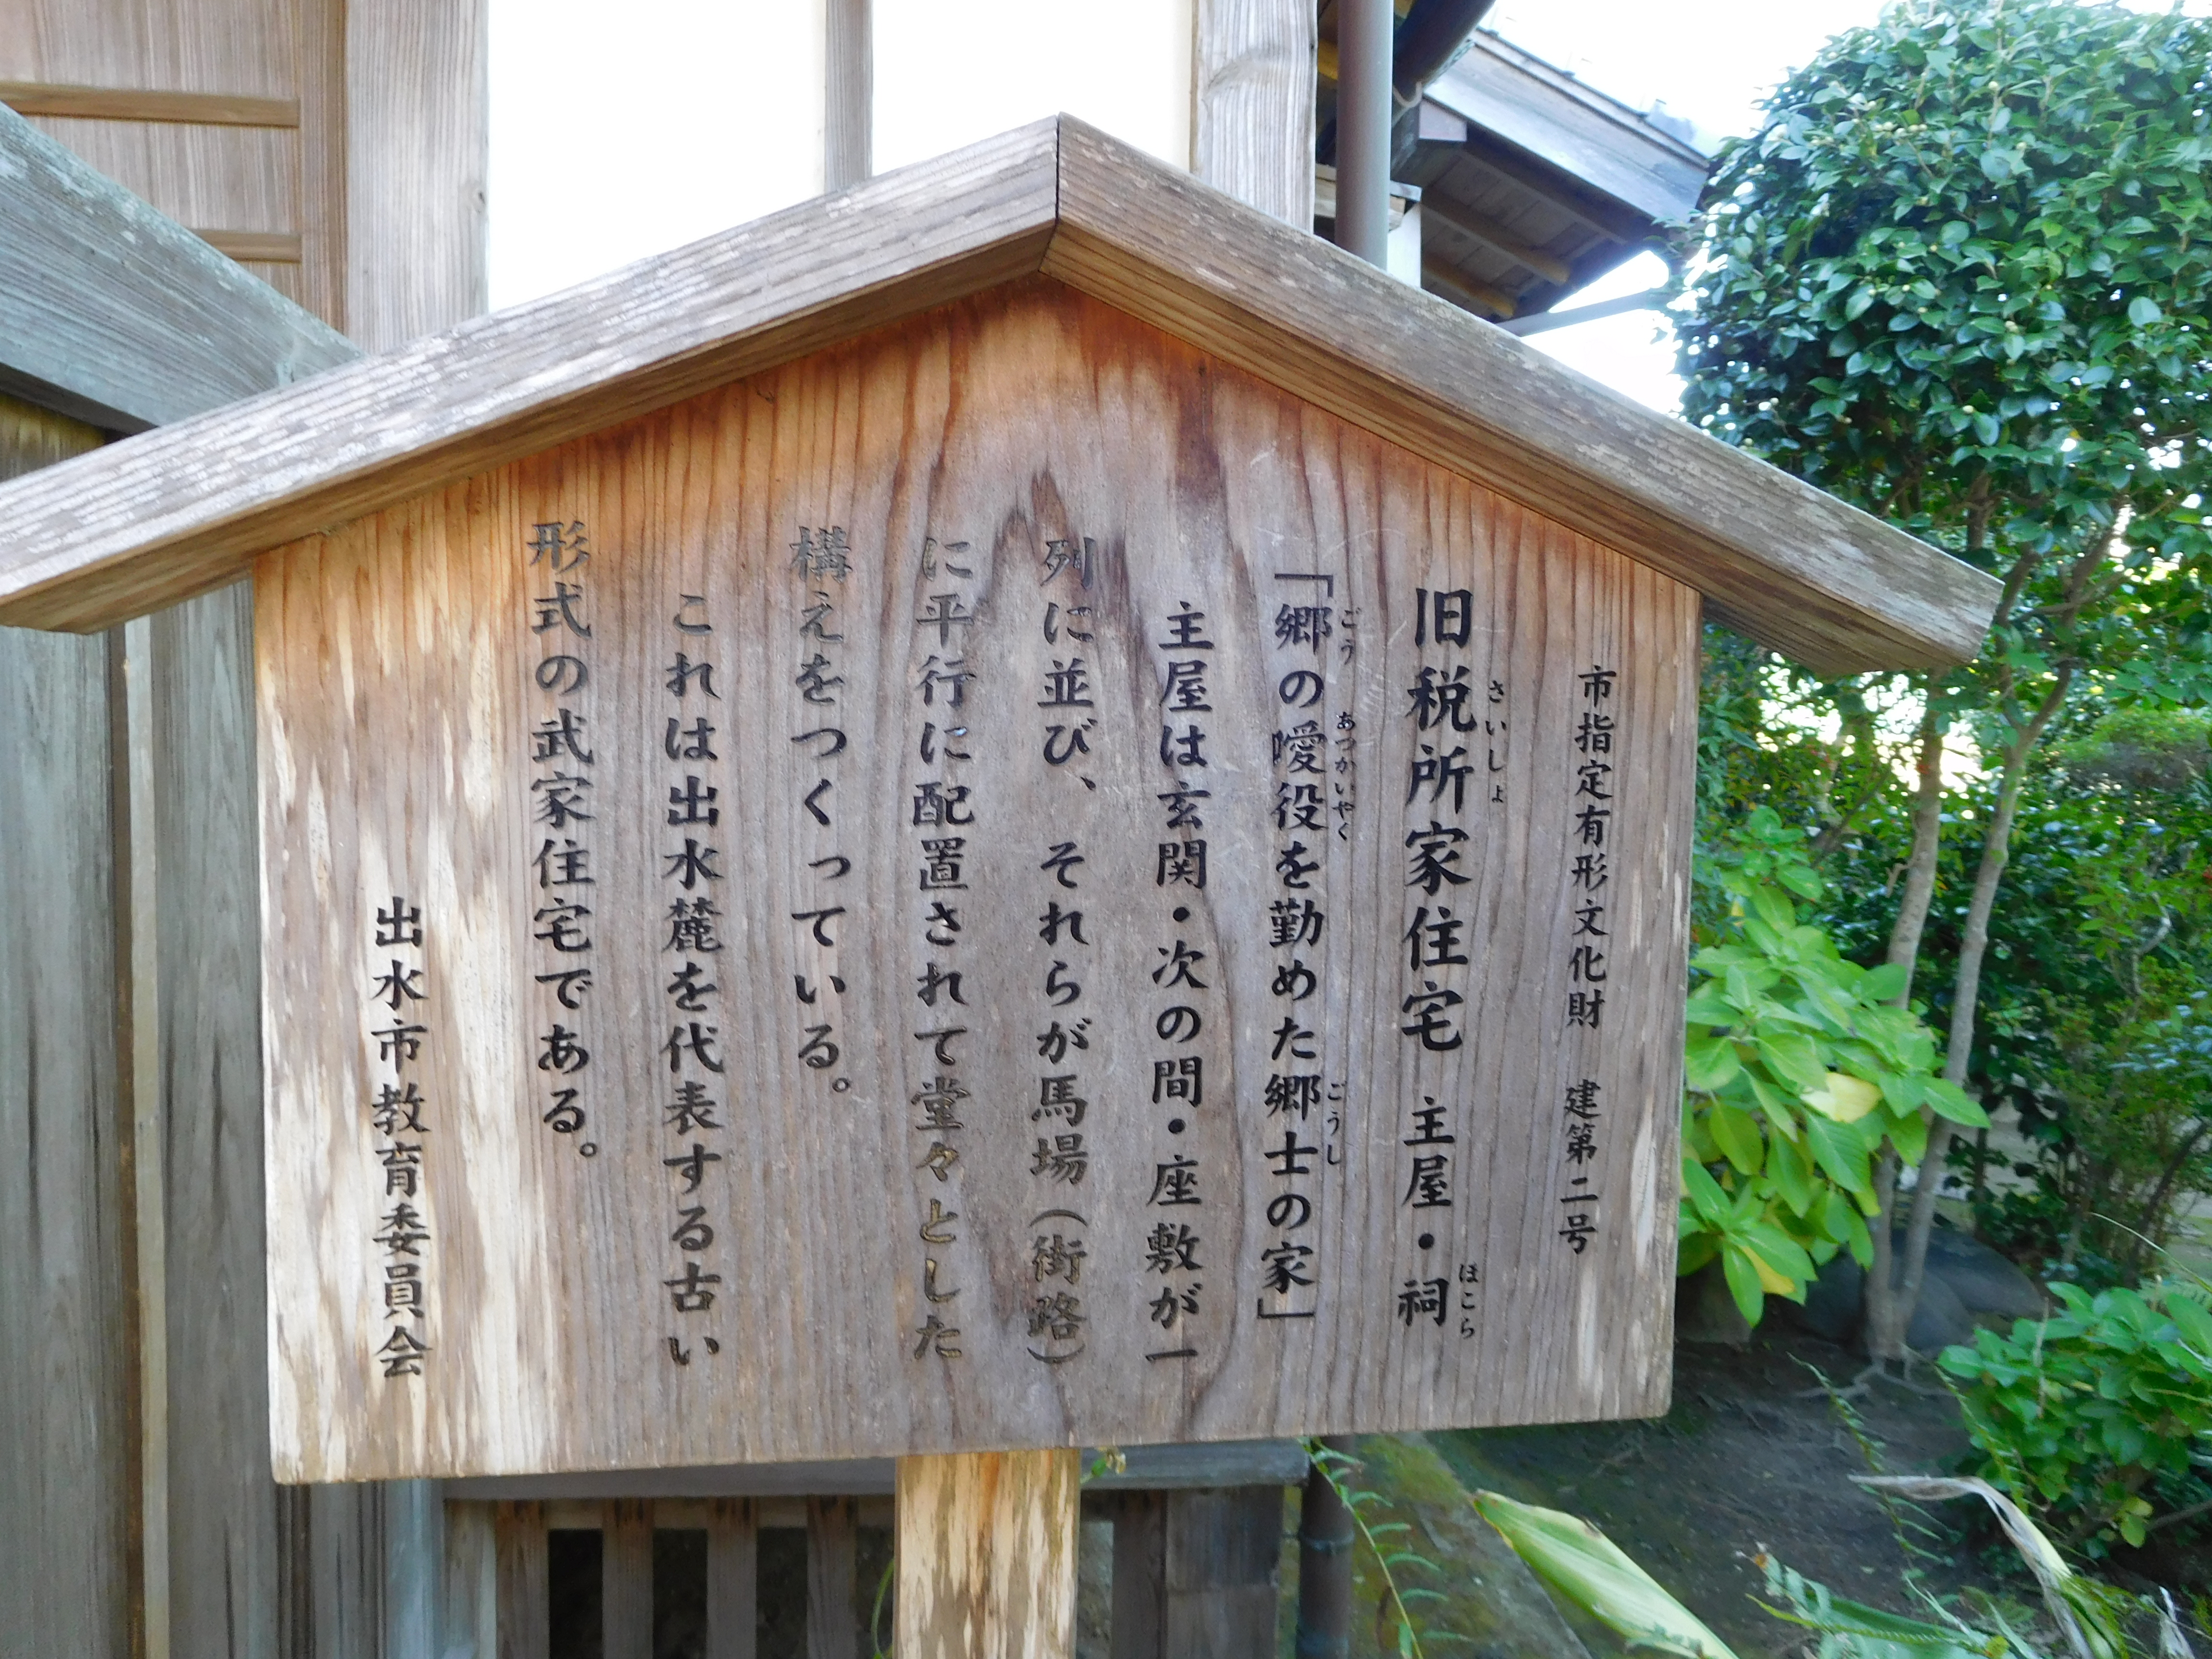 市指定有形文化財 建第二号
旧税所家住宅 主屋・祠
さいしょ
ほこら
「郷の曖役を勤めた郷士の家」
ごう
あつかいやく
ごうし
主屋は玄関・次の間・座敷が一
列に並び、それらが馬場（街路）
に平行に配置されて堂々とした
構えをつくっている。
これは出水麓を代表する古い
形式の武家住宅である。
出水市教育委員会